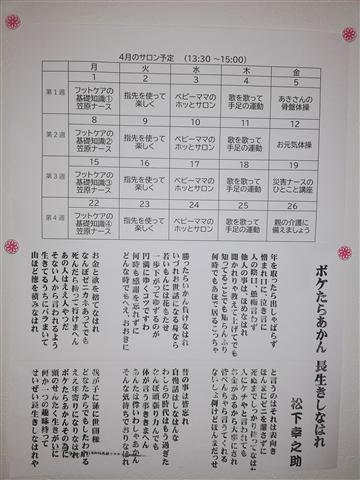 4月のサロン予定　(13:30 ～15:00)
月 火 水 木 金
1 2 3 4 5
第１週
フットケアの基礎知識① 笠原ナース
指先を使って楽しく
ベビーママのホッとサロン
歌を歌って手足の運動
あきさんの骨盤体操
8 9 10 11 12
第２週
フットケアの基礎知識② 笠原ナース
指先を使って楽しく
ベビーママのホッとサロン
歌を歌って手足の運動
お元気体操
15 16 17 18 19
第３週
フットケアの基礎知識③ 笠原ナース
指先を使って楽しく
ベビーママのホッとサロン
歌を歌って手足の運動
災害ナースのひとこと講座
22 23 24 25 26
第４週
フットケアの基礎知識④ 笠原ナース
指先を使って楽しく
ベビーママのホッとサロン
歌を歌って手足の運動
親の介護に備えましょう
ボケたらあかん 長生きしなはれ
松下幸之助
年を取ったら出しゃばらず
憎まれ口に、泣き言に
人の陰口、愚痴言わず
他人の事は、ほめなはれ
聞かれりゃ教えて上げてでも
知ってることでも知らんふり
何時でもあほで居るこっちゃ
勝ったらいかん負けなはれ
いづれお世話になる身なら
若いもんには花もたせ
一歩下がってゆずるのが
円満にゆくコツですわ
何時も感謝を忘れずに
どんな時でもへえ、おおきに
お金と欲を捨てなはれ
なんぼゼニカネあっても
死んだら持って行けまへん
あの人はええ人やった
そないに人から言われるよう
生きてるうちにバラまいて
山ほど徳を積みなはれ
と言うのはそれは表向き
ほんまにゼニを離さずに
死ぬまでしっかり持ってなはれ
人にケチやと言われても
お金があるから大事にされ
皆ベンチャラ言うてくれる
昔の事は皆忘れ
自慢話しはしなはんな
わしらの時代はもう過ぎた
なんぼ頑張り力んでも
体が言う事ききまへん
あんたは偉いわしゃあかん
そんな気持ちでおりなはれ
我が子に孫に世間様
どなたからでも慕われる
ええ年寄りになりなはれ
ボケたらあかんその為に
頭の洗たく生きがいに
何か一つの趣味持って
せいぜい長生きしなはれや